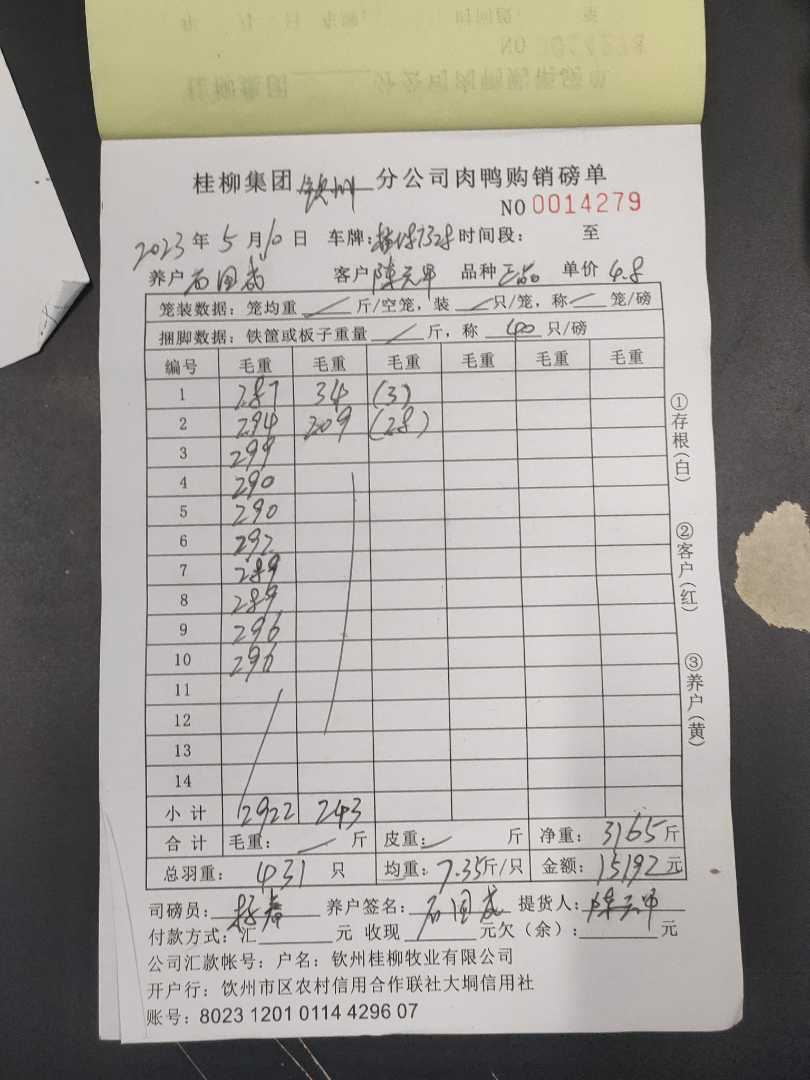 桂柳集团 钦州 分公司肉鸭购销磅单
NO 0014279
2023 年 5 月 10 日 车牌: 时间段: 至
养户 石国 客户 陈元甲 品种 正品 单价 4.8
笼装数据: 笼均重 / 斤/空笼, 装 / 只/笼, 称 / 笼/磅
捆脚数据: 铁筐或板子重量 / 斤, 称 40 只/磅
编号 毛重 毛重 毛重 毛重 毛重 毛重
1 287 34 (3)
2 294 209 (28)
3 299
4 290
5 290
6 292
7 289
8 289
9 296
10 296
11
12
13
14
小计 2922 243
合计 毛重: / 斤 皮重: / 斤 净重: 3165 斤
总羽重: 431 只 均重: 7.35 斤/只 金额: 15192 元
①存根(白)
②客户(红)
③养户(黄)
司磅员: 养户签名: 石国 提货人: 陈元甲
付款方式: 汇 元 收现 元欠(余): 元
公司汇款帐号: 户名: 钦州桂柳牧业有限公司
开户行: 饮州市区农村信用合作联社大垌信用社
账号: 8023 1201 0114 4296 07